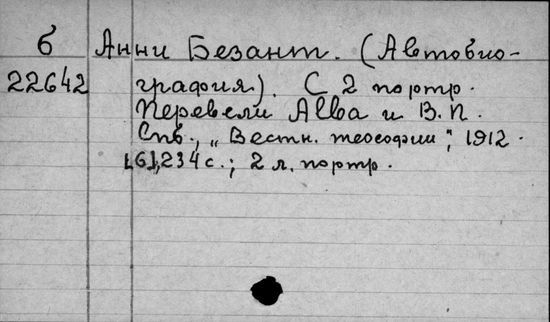 б
22642
Анни Безант. (Автобио-
графия). С 2 портр.
Перевели Alba и В.П.
Спб., „Вестн. теософии", 1912.
[6],234 с.; 2 л. портр.